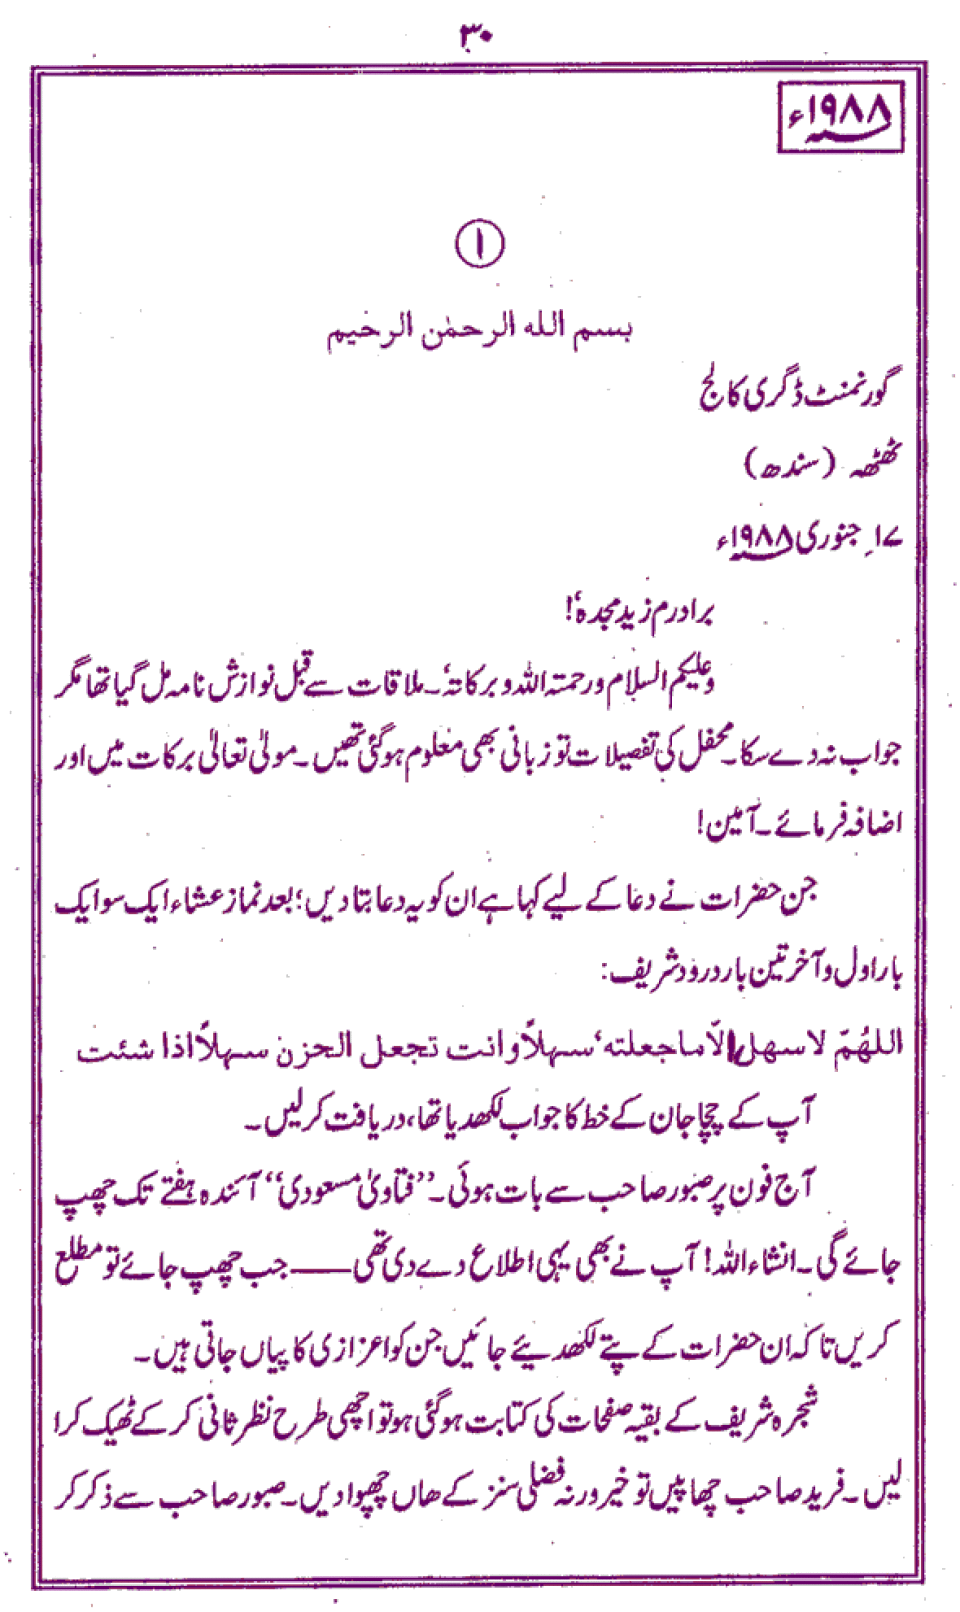 ۳۰
۱۹۸۸ء
۱
بسم الله الرحمٰن الرحیم
گورنمنٹ ڈگری کالج
ٹھٹھہ (سندھ)
۱۷؍ جنوری ۱۹۸۸ء
برادرم زید مجدہٗ!
وعلیکم السلام ورحمتہ اللہ وبرکاتہٗ۔ ملاقات سے قبل نوازش نامہ مل گیا تھا مگر
جواب نہ دے سکا۔ محفل کی تفصیلات تو زبانی بھی معلوم ہوگئی تھیں۔ مولیٰ تعالیٰ برکات میں اور
اضافہ فرمائے۔ آمین!
جن حضرات نے دعا کے لیے کہا ہے ان کو یہ دعا بتادیں؛ بعد نماز عشاء ایک سو ایک
بار اول و آخر تین بار درود شریف:
اللهُمّ لا سهل الّا ما جعلته، سهلاً وانت تجعل الحزن سهلاً اذا شئت
آپ کے چچا جان کے خط کا جواب لکھدیا تھا، دریافت کرلیں۔
آج فون پر صبور صاحب سے بات ہوئی۔ “فتاویٰ مسعودی” آئندہ ہفتے تک چھپ
جائے گی۔ انشاء اللہ! آپ نے بھی یہی اطلاع دے دی تھی —— جب چھپ جائے تو مطلع
کریں تاکہ ان حضرات کے پتے لکھدیئے جائیں جن کو اعزازی کاپیاں جاتی ہیں۔
شجرہ شریف کے بقیہ صفحات کی کتابت ہوگئی ہو تو اچھی طرح نظر ثانی کر کے ٹھیک کرا
لیں۔ فرید صاحب چھاپیں تو خیر ورنہ فضلی سنز کے ھاں چھپوادیں۔ صبور صاحب سے ذکر کر